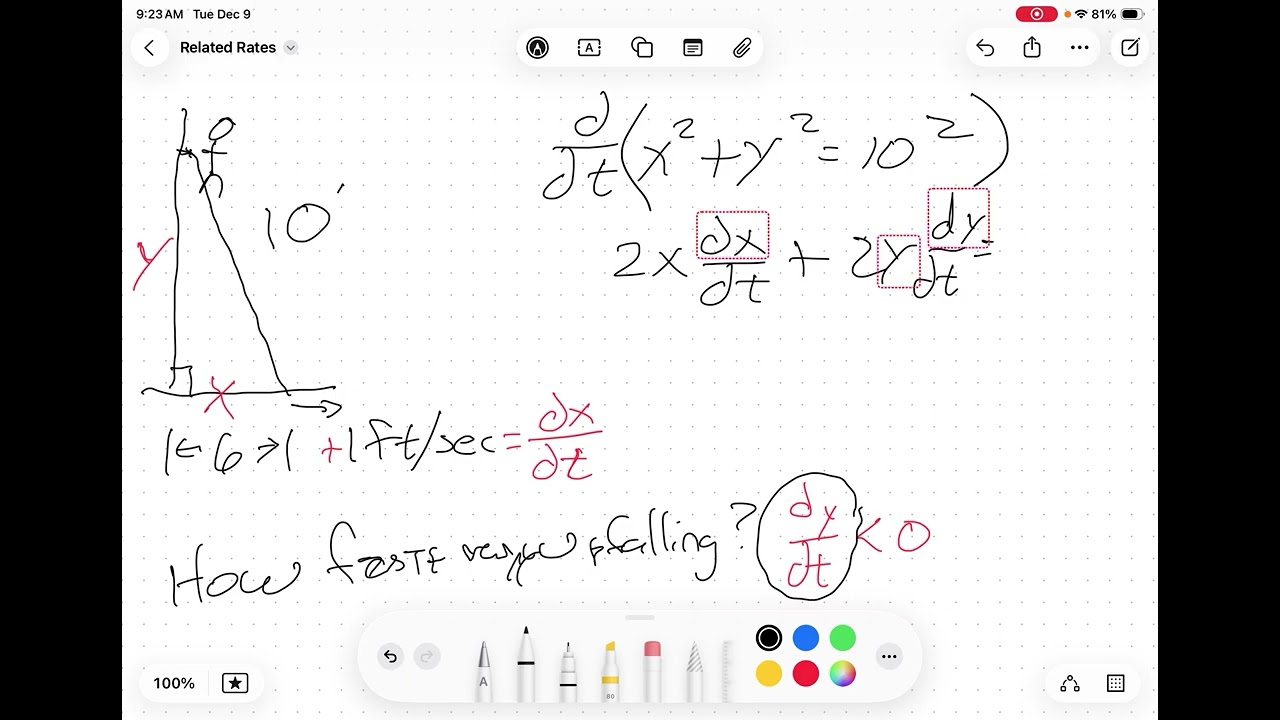 9:23 AM Tue Dec 9
81%
Related Rates
d/dt (x² + y² = 10²)
10'
y
2x dx/dt + 2y dy/dt =
x
|← 6 →| +1 ft/sec = dx/dt
How falling? dy/dt < 0
A
80
100%